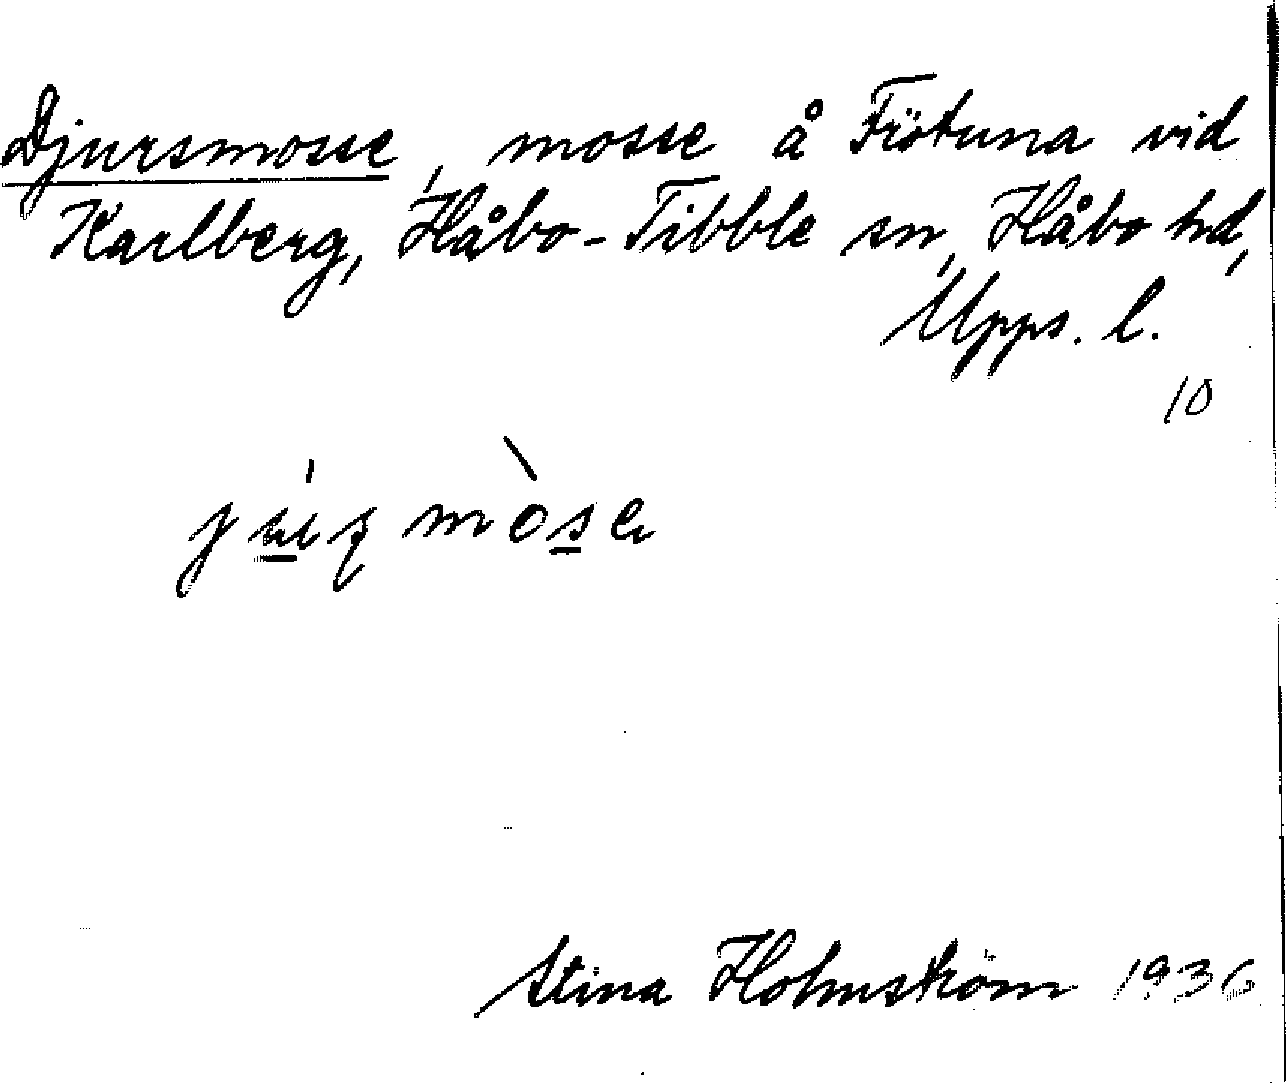 Djursmosse, mosse å Frötuna vid
Karlberg, Håbo-Tibble sn, Håbo hd,
Upps. l.
10
Stina Holmström 1936